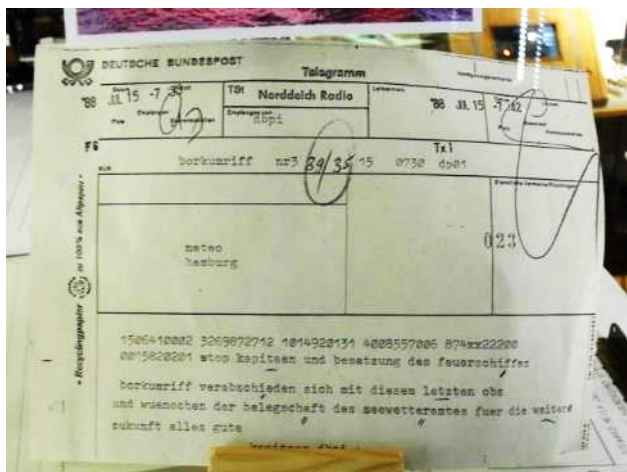 DEUTSCHE BUNDESPOST
Telegramm
'88 JUL 15 -7
TSt Norddeich Radio
'88 JUL 15 -7 42
Empfangen
Empfangen von
dbpi
Platz
Platz
FS
Tx1
borkumriff nr3 39/35 15 0730 db01
aus
Dienstliche
023
meteo
hamburg
« Recyclingpapier zu 100% aus Altpapier »
1506410002 3269872712 1014920131 4008557006 874xx22200
0015820201 stop kapitaen und besatzung des feuerschiffes
borkumriff verabschieden sich mit diesem letzten obs
und wuenschen der belegschaft des seewetteramtes fuer die weitere
zukunft alles gute
kapitaen dbpi